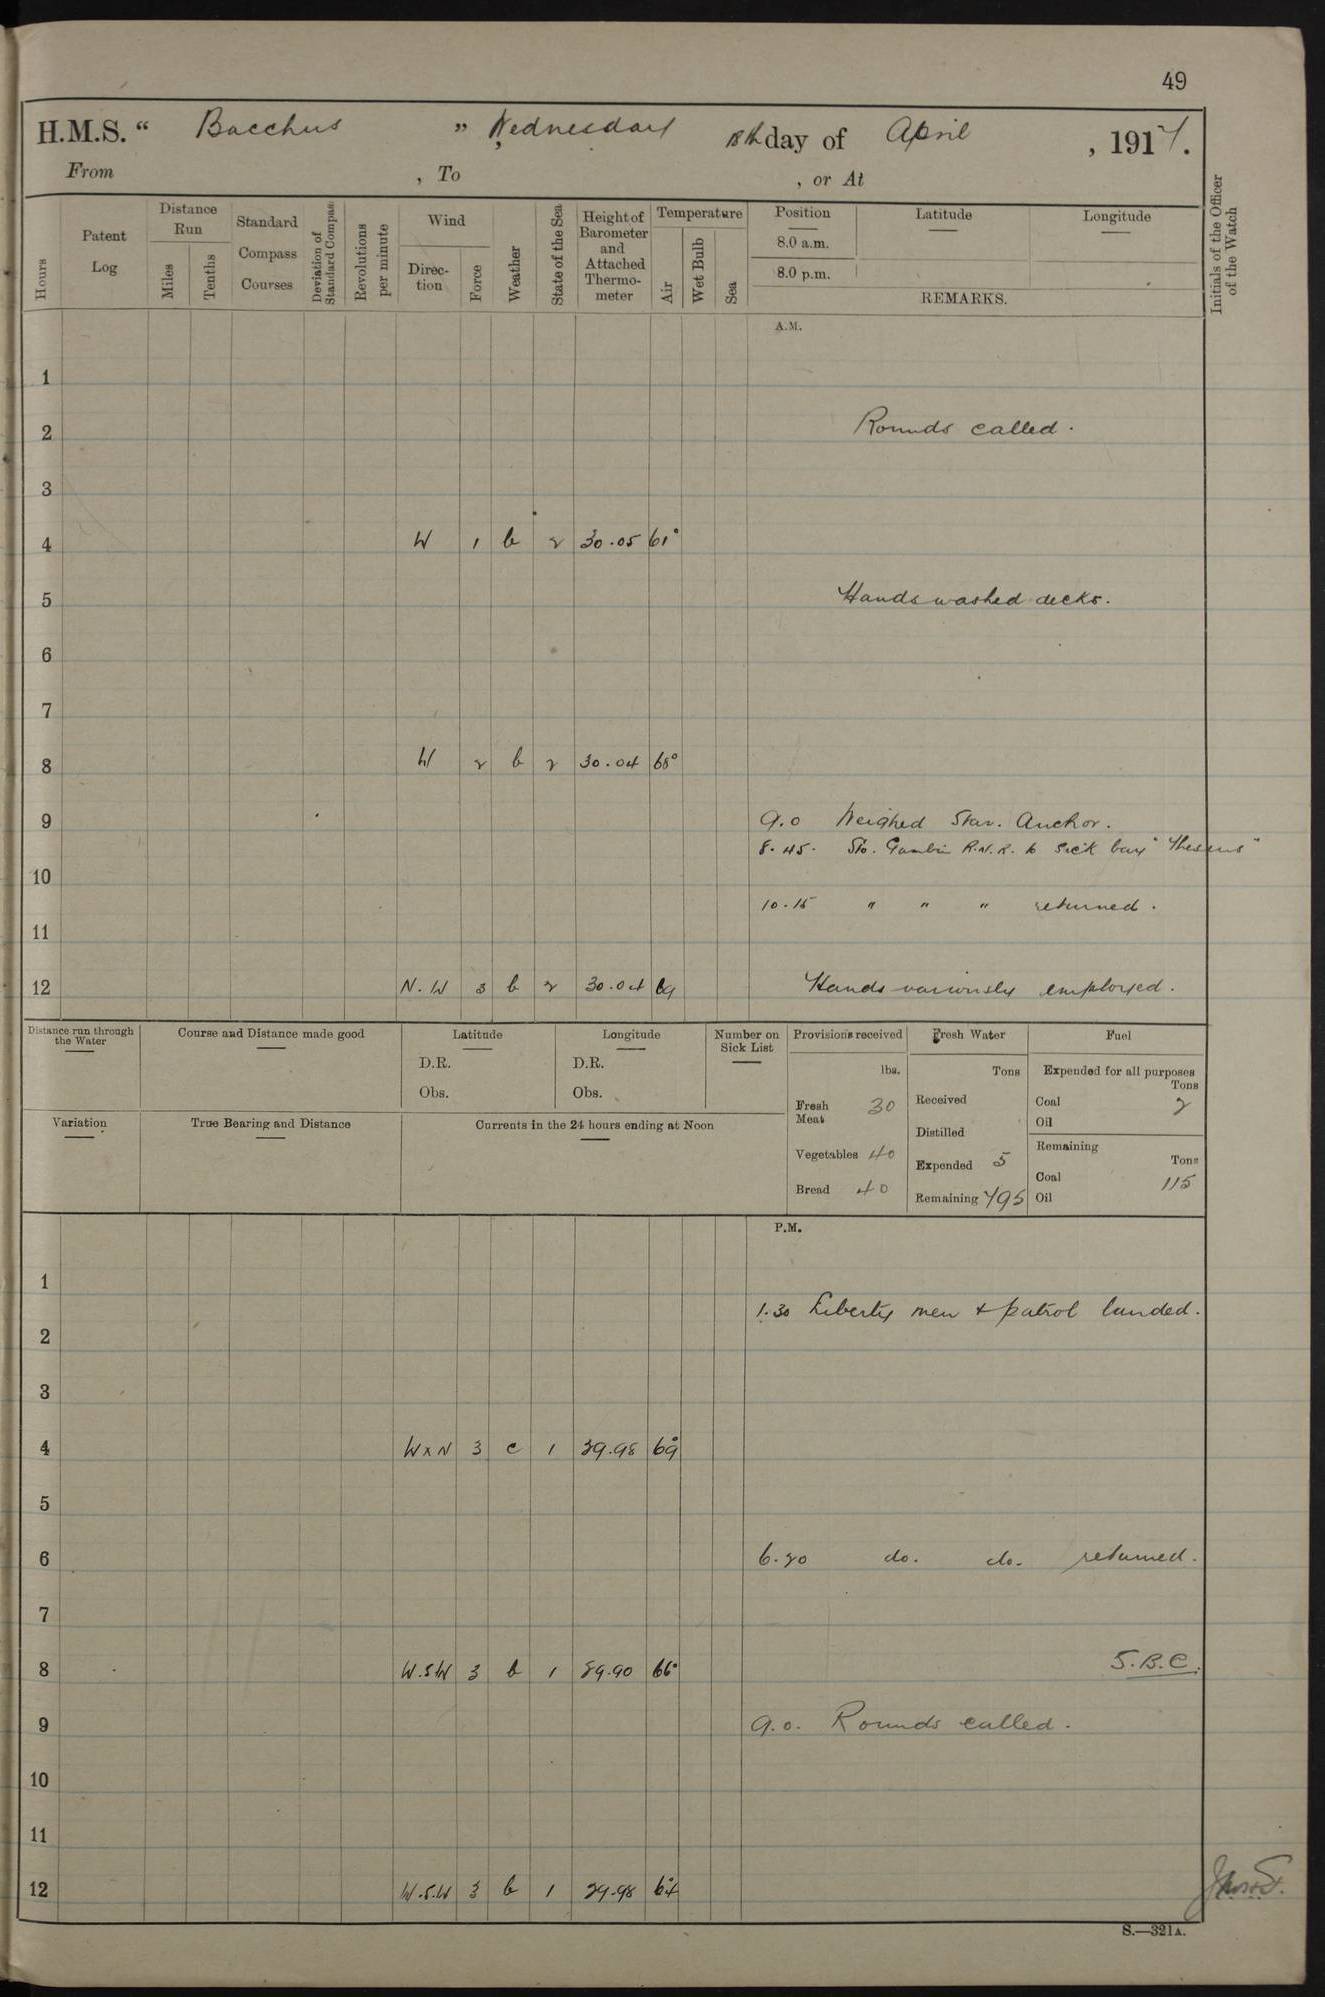 49
H.M.S. " Bacchus " Wednesday 18th day of April , 1917.
From , To , or At
Hours
Patent Log
Distance Run
Miles
Tenths
Standard Compass Courses
Deviation of Standard Compass
Revolutions per minute
Wind
Direc-tion
Force
Weather
State of the Sea
Height of Barometer and Attached Thermo-meter
Temperature
Air
Wet Bulb
Sea
Position
8.0 a.m.
8.0 p.m.
Latitude
Longitude
REMARKS.
Initials of the Officer of the Watch
A.M.
1
2 Rounds called.
3
4 W 1 b 2 30.05 61°
5 Hands washed decks.
6
7
8 W 2 b 2 30.04 68°
9 9.0 Weighed Star. Anchor.
8.45. Sto. Gambin R.N.R. to Sick bay "Theseus"
10
10.15 " " " returned.
11
12 N.W 3 b 2 30.04 69 Hands variously employed.
Distance run through the Water
Course and Distance made good
Latitude
D.R.
Obs.
Longitude
D.R.
Obs.
Number on Sick List
Provisions received
lbs.
Fresh Meat 30
Vegetables 40
Bread 40
Fresh Water
Tons
Received
Distilled
Expended 5
Remaining 795
Fuel
Expended for all purposes
Tons
Coal 2
Oil
Remaining
Tons
Coal 115
Oil
Variation
True Bearing and Distance
Currents in the 24 hours ending at Noon
P.M.
1
1.30 Liberty men & patrol landed.
2
3
4 W x N 3 c 1 29.98 69°
5
6 6.20 do. do. returned.
7
8 W.SW 3 b 1 29.90 66° S.B.C.
9 9.0. Rounds called.
10
11
12 W.S.W 3 b 1 29.98 64°
S.—321A.